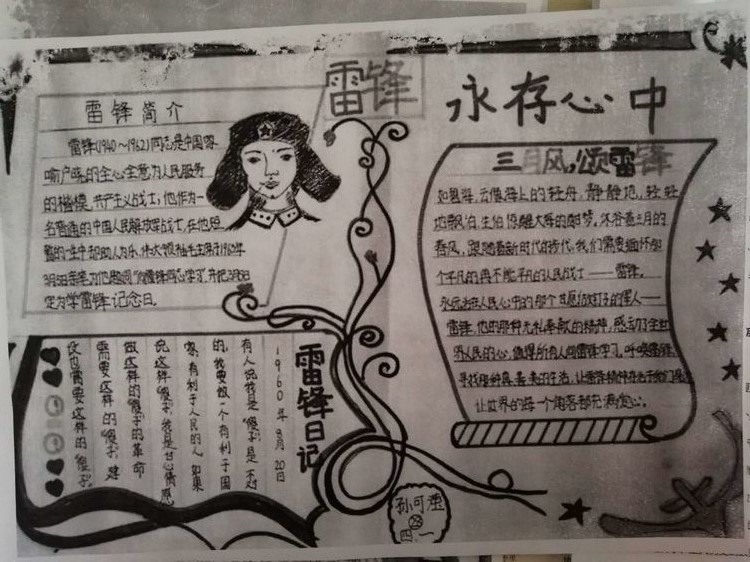 雷锋 永存心中
雷锋简介
雷锋(1940～1962)同志是中国家
喻户晓的全心全意为人民服务
的楷模,共产主义战士,他作为一
名普通的中国人民解放军战士,在他短
暂的一生中却助人为乐,伟大领袖毛主席于1963年
3月5日亲笔为他题词“向雷锋同志学习”,并把3月5日
定为学雷锋记念日。
三月风,颂雷锋
如碧海,云像海上的轻舟,静静地,轻轻
春风,跟随着新时代的步伐,我们需要缅怀那
个平凡的再不能平凡的人民战士——雷锋。
永远活在人民心中的那个甘愿做钉子的伟人——
雷锋,他的那种无私奉献的精神,感动了全世
界人民的心,值得所有人向雷锋学习,呼唤雷锋
让世界的每一个角落都充满爱心。
雷锋日记
1960年9月20日
有人说我是“傻子”,是不对
的,我要做一个有利于国
家,有利于人民的人,如果
说这样“傻子”,我是甘心情愿
做这样的“傻子”的,革命
需要这样的“傻子”,建
设也需要这样的“傻子”。
孙可滢
四